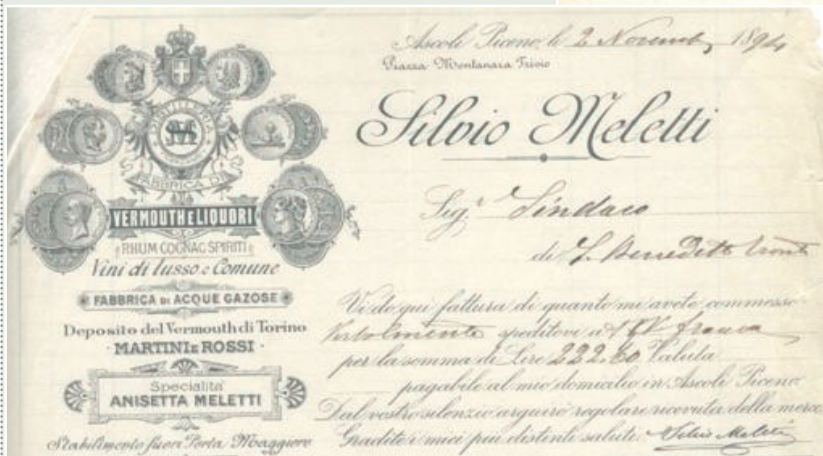 Ascoli Piceno, li 2 Novemb 1894
Piazza Montanara Trivio
Silvio Meletti
DISTILLERIA
SM
FABBRICA DI
VERMOUTH E LIQUORI
RHUM COGNAC SPIRITI
Vini di lusso e Comune
FABBRICA DI ACQUE GAZOSE
Deposito del Vermouth di Torino
MARTINI E ROSSI
Specialità
ANISETTA MELETTI
Stabilimento fuori Porta Maggiore
Sigr Sindaco
di S. Benedetto Tronto
Vi do qui fattura di quanto mi avete commesso
Verbalmente speditovi a franca
per la somma di Lire 222.60 Valuta
pagabile al mio domicilio in Ascoli Piceno
Dal vostro silenzio arguirò regolare ricevuta della merce
Gradite i miei più distinti saluti Silvio Meletti